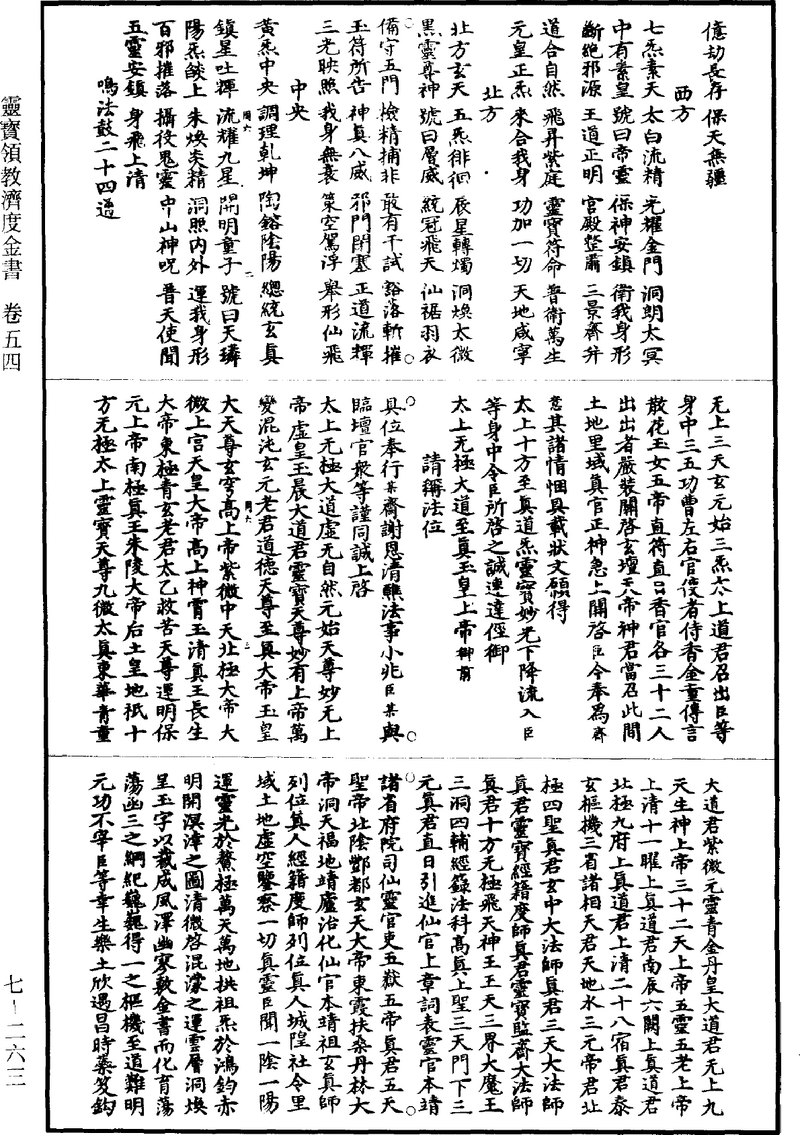 億劫長存 保天無疆
西方
七炁素天 太白流精 光耀金門 洞朗太冥
中有素皇 號曰帝靈 保神安鎮 衛我身形
斷絶邪源 王道正明 宮殿整肅 三景齊并
道合自然 飛昇紫庭 靈寶符命 普衛萬生
元皇正炁 來合我身 功加一切 天地咸寧
北方
北方玄天 五炁徘徊 辰星轉燭 洞煥太微
黑靈尊神 號曰層威 統冠飛天 仙裾羽衣
備守五門 檢精捕非 敢有干試 豁落斬摧
玉符所告 神真八威 邪門閉塞 正道流輝
三光映照 我身無衰 策空駕浮 舉形仙飛
中央
黃炁中央 調理乾坤 陶鎔陰陽 總統玄真
鎮星吐輝 流耀九星 開明童子 號曰天璘
陽炁燄上 朱煥炎精 洞照內外 運我身形
百邪摧落 攝役鬼靈 中山神呪 普天使聞
五靈安鎮 身飛上清
鳴法鼓二十四通
无上三天玄元始三炁太上道君召出臣等
身中三五功曹左右官使者侍香金童傳言
散花玉女五帝直符直日香官各三十二人
出出者嚴裝關啓玄壇天帝神君當召此間
土地里域真官正神急上關啓臣今奉爲齋
意其諸情悃具載狀文願得
太上十方至真道炁靈寶妙光下降流入臣
等身中令臣所啓之誠速達徑御
太上无極大道至真玉皇上帝御前
請稱法位
具位奉行某齋謝恩清醮法事小兆臣某與
臨壇官衆等謹同誠上啓
太上无極大道虛无自然元始天尊妙无上
帝虛皇玉晨大道君靈寶天尊妙有上帝萬
變混沌玄元老君道德天尊至真大帝玉皇
大天尊玄穹高上帝紫微中天北極大帝大
微上宮天皇大帝高上神霄玉清真王長生
大帝東極青玄老君太乙救苦天尊運明保
元上帝南極真王朱陵大帝后土皇地祇十
方无極太上靈寶天尊九微太真東華青童
大道君紫微元靈青金丹皇大道君无上九
天生神上帝三十二天上帝五靈五老上帝
上清十一曜上真道君南辰六闕上真道君
北極九府上真道君上清二十八宿真君泰
玄樞機三省諸相天君天地水三元帝君北
極四聖真君玄中大法師真君三天大法師
真君靈寶經籍度師真君靈寶監齋大法師
真君十方无極飛天神王王天三界大魔王
三洞四輔經籙法科高真上聖三天門下三
元真君直日引進仙官上章詞表靈官本靖
諸省府院司仙靈官吏五嶽五帝真君五天
聖帝北陰酆都玄天大帝東霞扶桑丹林大
帝洞天福地靖廬治化仙官本靖祖玄真師
列位真人經籍度師列位真人城隍社令里
域土地虛空鑒察一切真靈臣聞一陰一陽
運靈光於鰲極萬天萬地拱祖炁於鴻鈞赤
明開溟涬之圖清微啓混濛之運雲層洞煥
呈玉字以裁成風澤幽寥敕金書而化育蕩
蕩函三之綱紀巍巍得一之樞機至道難明
元功不宰臣等幸生樂土欣遇昌時纂笈鈎
靈寶領教濟度金書 卷五四
七-二六三